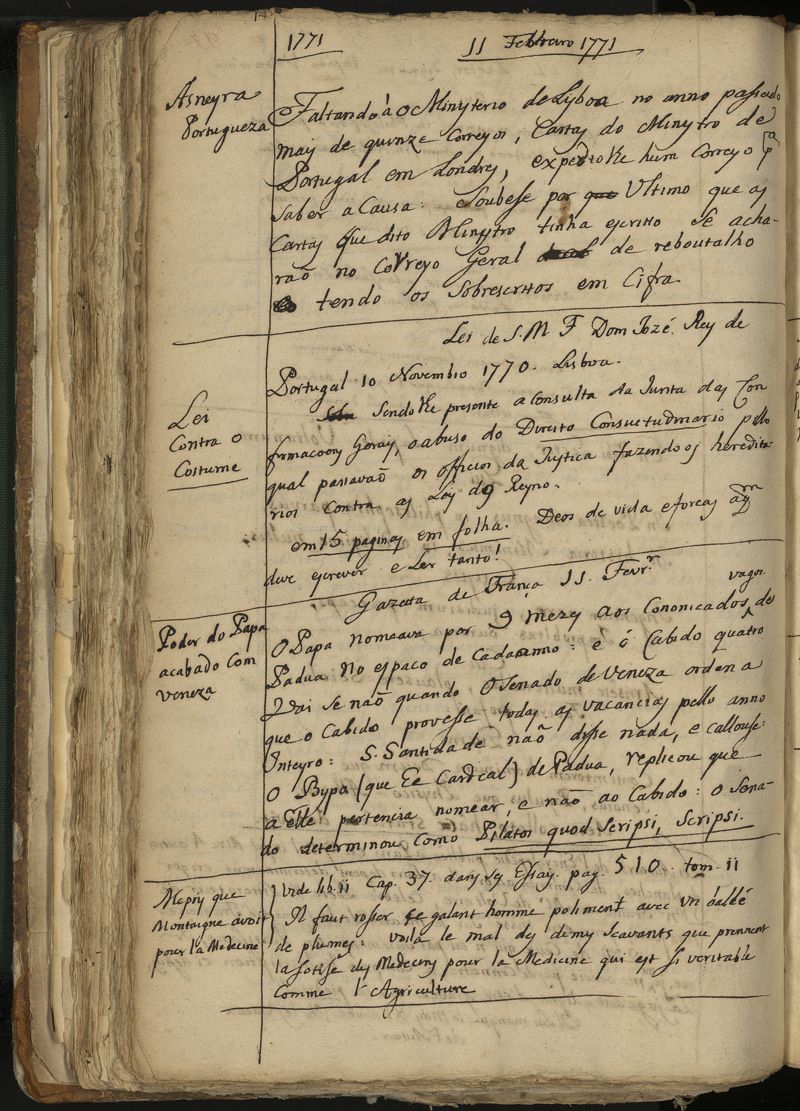 1771
11 Febraro 1771
Asneyra
Portugueza
Faltando à o Minysterio de Lyboa no anno passado
may de quinze Correyos, Cartas do Minystro de
Portugal em Londres, expediolhe hum Correyo pª
saber a Causa: Soubese por Ultimo que as
Cartas que dito Minystro tinha escritto se acha-
raõ no Correyo Geral de reboutalho
tendo os Sobrescrittos em Cifra.
Lei
Contra o
Costume
Lei de S. M F Dom Jozé Rey de
Portugal 10 Novembio 1770. Lisboa.
Sendolhe presente a consulta da Junta das Con
firmacoens Gerays, o abuso do Direito Consuetudinario pello
qual passavaõ os officios da Justica fazendoos heredita-
rios contra as Leys do Reyno.
em 15 paginas em folha. Deos de vida e forcas aqm
deve escrever e Ler tanto!
Gazetta de França 11. Fevrr
Poder do Papa
acabado Com
Veneza
O Papa nomeava por 9 mezes aos Cononicados vagos de
Padua no espaco de Cada anno: è ó Cabido quatro
Vai se naõ quando O Senado de Veneza ordena
que o Cabido provesse todas as vacancias pello anno
Inteyro: S. Santidade naõ disse nada, e callouse:
O Bypo (que Ee Cardeal) de Padua, replicou que
a Elle pertencia nomear, e naõ ao Cabido: o Sena-
do determinou Como Pilatos quod Scripsi, Scripsi.
Mepris que
Montaigne avoit
pour la Medecine
Vide lib. ii Cap. 37. dans ses Essays. pag. 510. tom. ii
Il faut rosser ce galant homme poliment avec un ballé
de plumes: voilà le mal des demy Scavants que prennent
la sotise des Medecins pour la Medicine qui est si veritable
Comme l'Agriculture